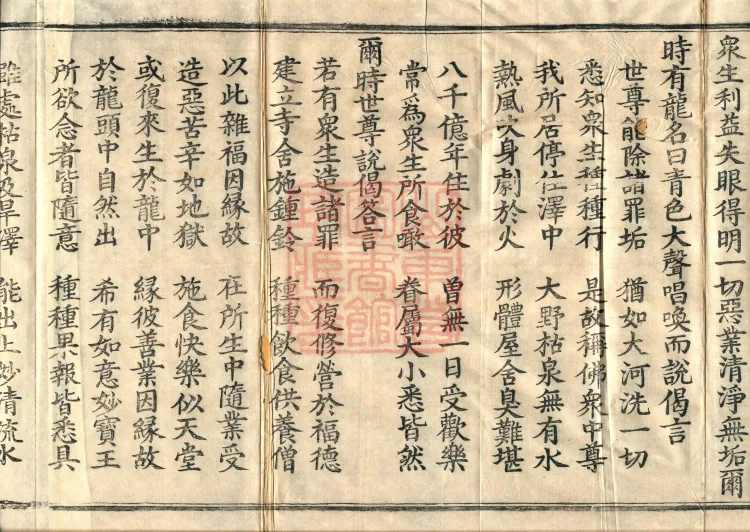 眾生利益失眼得明一切惡業清淨無垢爾
時有龍名曰青色大聲唱喚而說偈言
世尊能除諸罪垢　猶如大河洗一切
悉知眾生種種行　是故稱佛眾中尊
我所居停住澤中　大野枯泉無有水
熱風吹身劇於火　形體屋舍臭難堪
八千億年住於彼　曾無一日受歡樂
常為眾生所食噉　眷屬大小悉皆然
爾時世尊說偈答言
若有眾生造諸罪　而復修營於福德
建立寺舍施鍾鈴　種種飲食供養僧
以此雜福因緣故　在所生中隨業受
造惡苦辛如地獄　施食快樂似天堂
或復來生於龍中　緣彼善業因緣故
於龍頭中自然出　希有如意妙寶王
所欲念者皆隨意　種種果報皆悉具
雖處枯泉及旱澤　能出上妙清流水